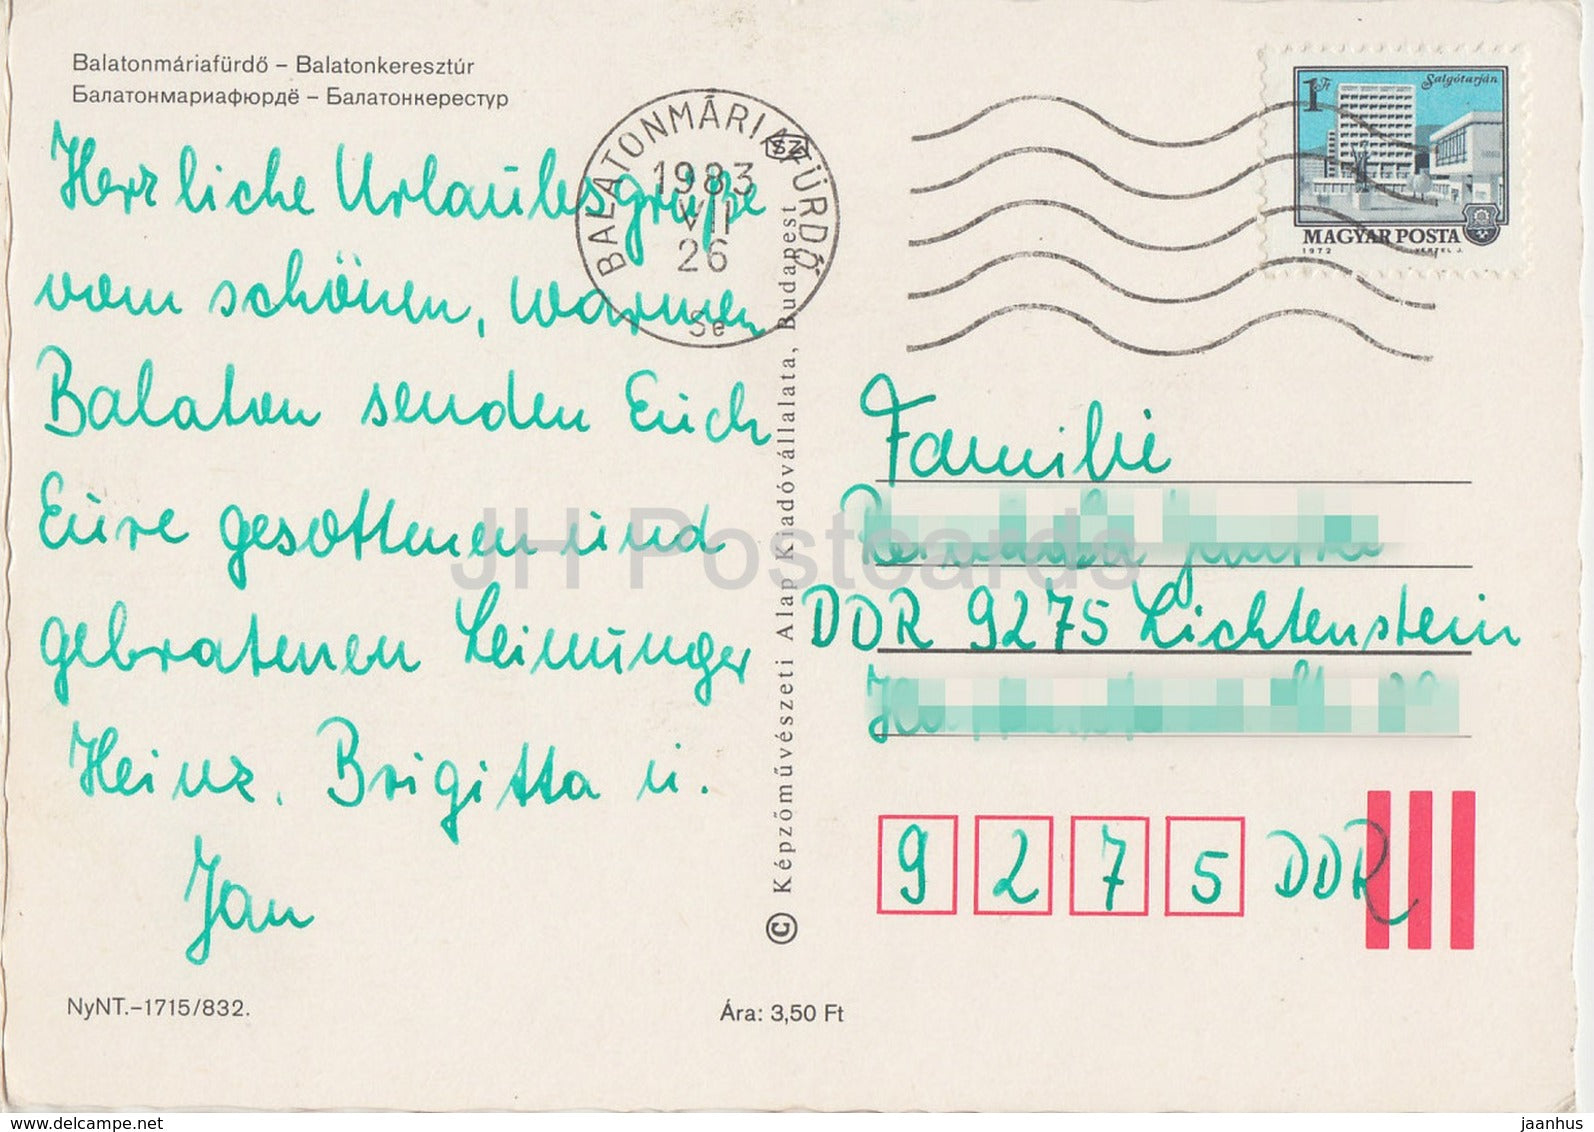 Balatonmáriafürdő – Balatonkeresztúr
Балатонмариафюрдё – Балатонкерестур
Herzliche Urlaubsgrüße
vom schönen, warmen
Balaton senden Euch
Eure gesottenen und
gebratenen Leinunger
Heinz, Brigitta u.
Jan
NyNT.–1715/832.
Ára: 3,50 Ft
© Képzőművészeti Alap Kiadóvállalata, Budapest
BALATONMÁRIAFÜRDŐ
SZ
1983
VII
26
Se
1 Ft
Salgótarján
MAGYAR POSTA
1972 VERTEL J.
Familie
DDR 9275 Lichtenstein
9 2 7 5 DDR
JH Postcards
www.delcampe.net
jaanhus